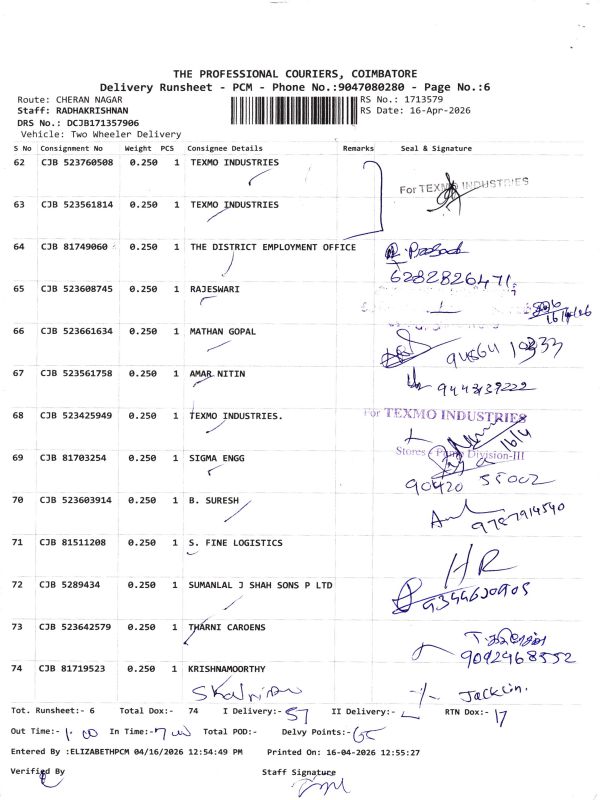 THE PROFESSIONAL COURIERS, COIMBATORE
Delivery Runsheet - PCM - Phone No.:9047080280 - Page No.:6
Route: CHERAN NAGAR RS No.: 1713579
Staff: RADHAKRISHNAN RS Date: 16-Apr-2026
DRS No.: DCJB171357906
Vehicle: Two Wheeler Delivery
S No Consignment No Weight PCS Consignee Details Remarks Seal & Signature
62 CJB 523760508 0.250 1 TEXMO INDUSTRIES
For TEXMO INDUSTRIES
63 CJB 523561814 0.250 1 TEXMO INDUSTRIES
64 CJB 81749060 0.250 1 THE DISTRICT EMPLOYMENT OFFICE
6282826471
65 CJB 523608745 0.250 1 RAJESWARI
16/4/26
66 CJB 523661634 0.250 1 MATHAN GOPAL
67 CJB 523561758 0.250 1 AMAR NITIN
9443139222
68 CJB 523425949 0.250 1 TEXMO INDUSTRIES. For TEXMO INDUSTRIES
16/4
Stores - Pump Division-III
69 CJB 81703254 0.250 1 SIGMA ENGG
90420 55002
70 CJB 523603914 0.250 1 B. SURESH
9787914540
71 CJB 81511208 0.250 1 S. FINE LOGISTICS
HR
72 CJB 5289434 0.250 1 SUMANLAL J SHAH SONS P LTD
9344620905
73 CJB 523642579 0.250 1 THARNI CAROENS
9092468552
74 CJB 81719523 0.250 1 KRISHNAMOORTHY
Jacklin.
Tot. Runsheet:- 6 Total Dox:- 74 I Delivery:- 57 II Delivery:- RTN Dox:- 17
Out Time:- 1.00 In Time:- 7.00 Total POD:- Delvy Points:-
Entered By :ELIZABETHPCM 04/16/2026 12:54:49 PM Printed On: 16-04-2026 12:55:27
Verified By Staff Signature